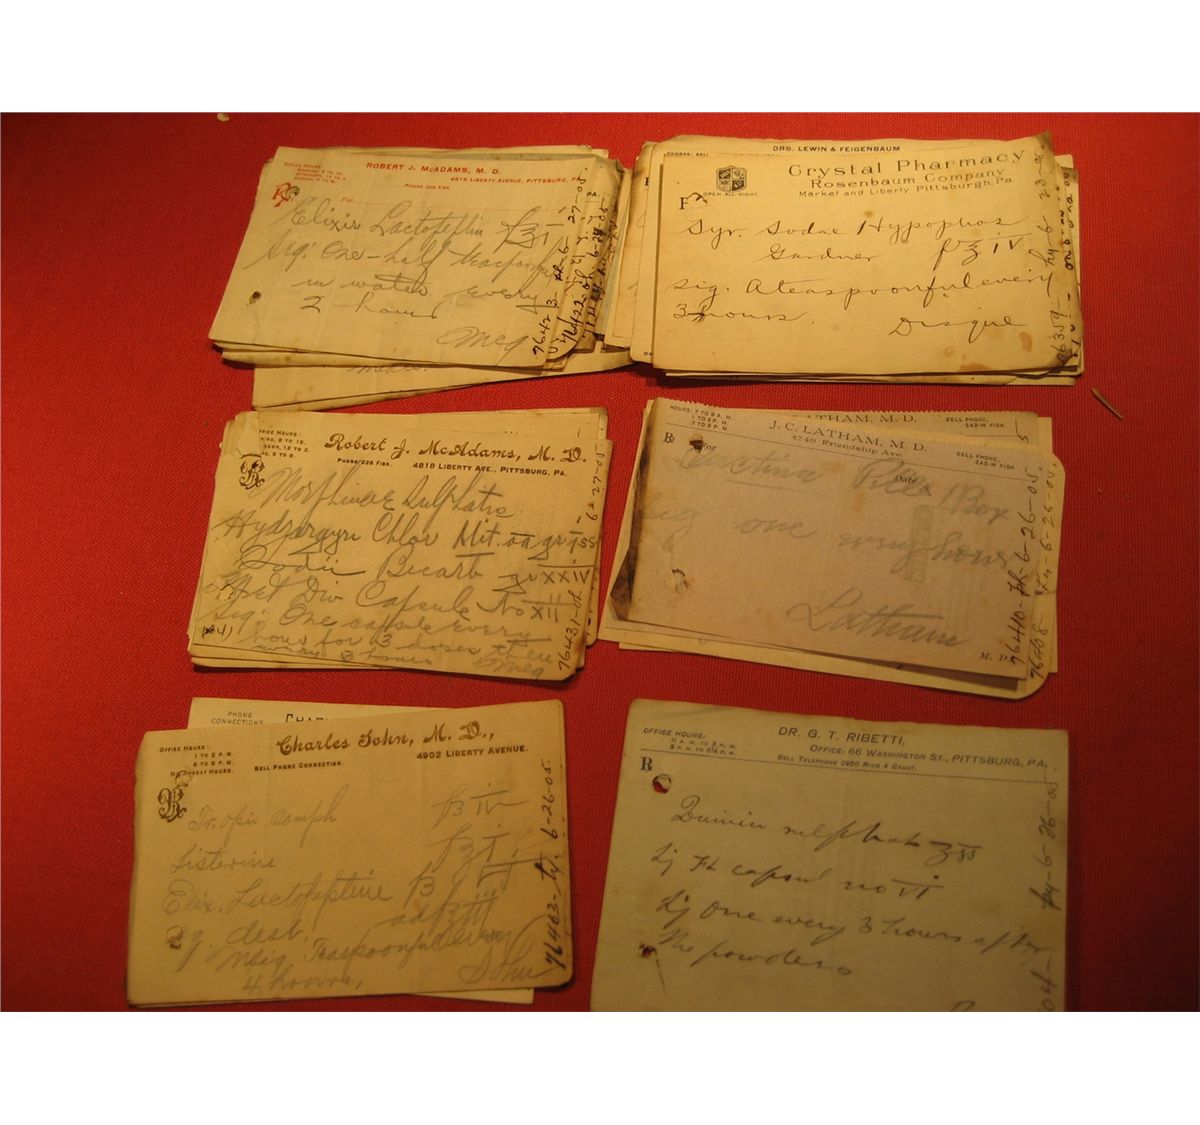 OFFICE HOURS:
ROBERT J. McADAMS, M. D.
4818 LIBERTY AVENUE, PITTSBURG, PA.
PHONE 226 FISK
For
Elixir Lactopeptin f℥
Sig: One-half teaspoonful
in water every
2 hours
McA
76423
6-27-05
76422
PA.
DRS. LEWIN & FEIGENBAUM
Crystal Pharmacy
Rosenbaum Company
Market and Liberty Pittsburgh, Pa.
OPEN ALL NIGHT
Syr. Sodae Hypophos
Gardner f℥ IV
Sig. A teaspoonful every
3 hours.
Disque
76359
OFFICE HOURS:
Robert J. McAdams, M. D.
PHONE 226 FISK.
4818 LIBERTY AVE., PITTSBURG, PA.
Morphinae Sulphatis
Hydrargyri Chlor Mit. aa gr iss
Sodii Bicarb gr XXIV
Div Capsule No XII
Sig: One capsule every
hour for 3 doses then
every 3 hours McA
76431
6-27-05
HOURS: 7 TO 9 A. M.
1 TO 3 P. M.
7 TO 9 P. M.
LATHAM, M. D.
BELL PHONE,
242-W FISK
J. C. LATHAM, M. D.
4740 Friendship Ave.
BELL PHONE,
242-W FISK.
R For
Date
Pills 1 Box
Sig one every hour
Latham
M. D.
76410
6-26-05
76408
6-26-05
PHONE
CONNECTIONS
OFFICE HOURS:
1 TO 2 P. M.
6 TO 8 P. M.
NO SUNDAY HOURS.
Charles John, M. D.,
4902 LIBERTY AVENUE.
BELL PHONE CONNECTION.
Tr. Opii Camph f℥ IV
Listerine
Elix. Lactopeptine
Aq. dest. ad
Msig. Teaspoonful every
4 hours,
John
76403
6-26-05
OFFICE HOURS:
11 A. M. TO 3 P. M.
6 P. M. TO 8½ P. M.
DR. G. T. RIBETTI,
OFFICE: 66 WASHINGTON ST., PITTSBURG, PA.
BELL TELEPHONE 2950 RING 4 GRANT.
R
Quinin sulphat ʒss
Ft capsul no VI
One every 3 hours after
the powders
04
6-26-05